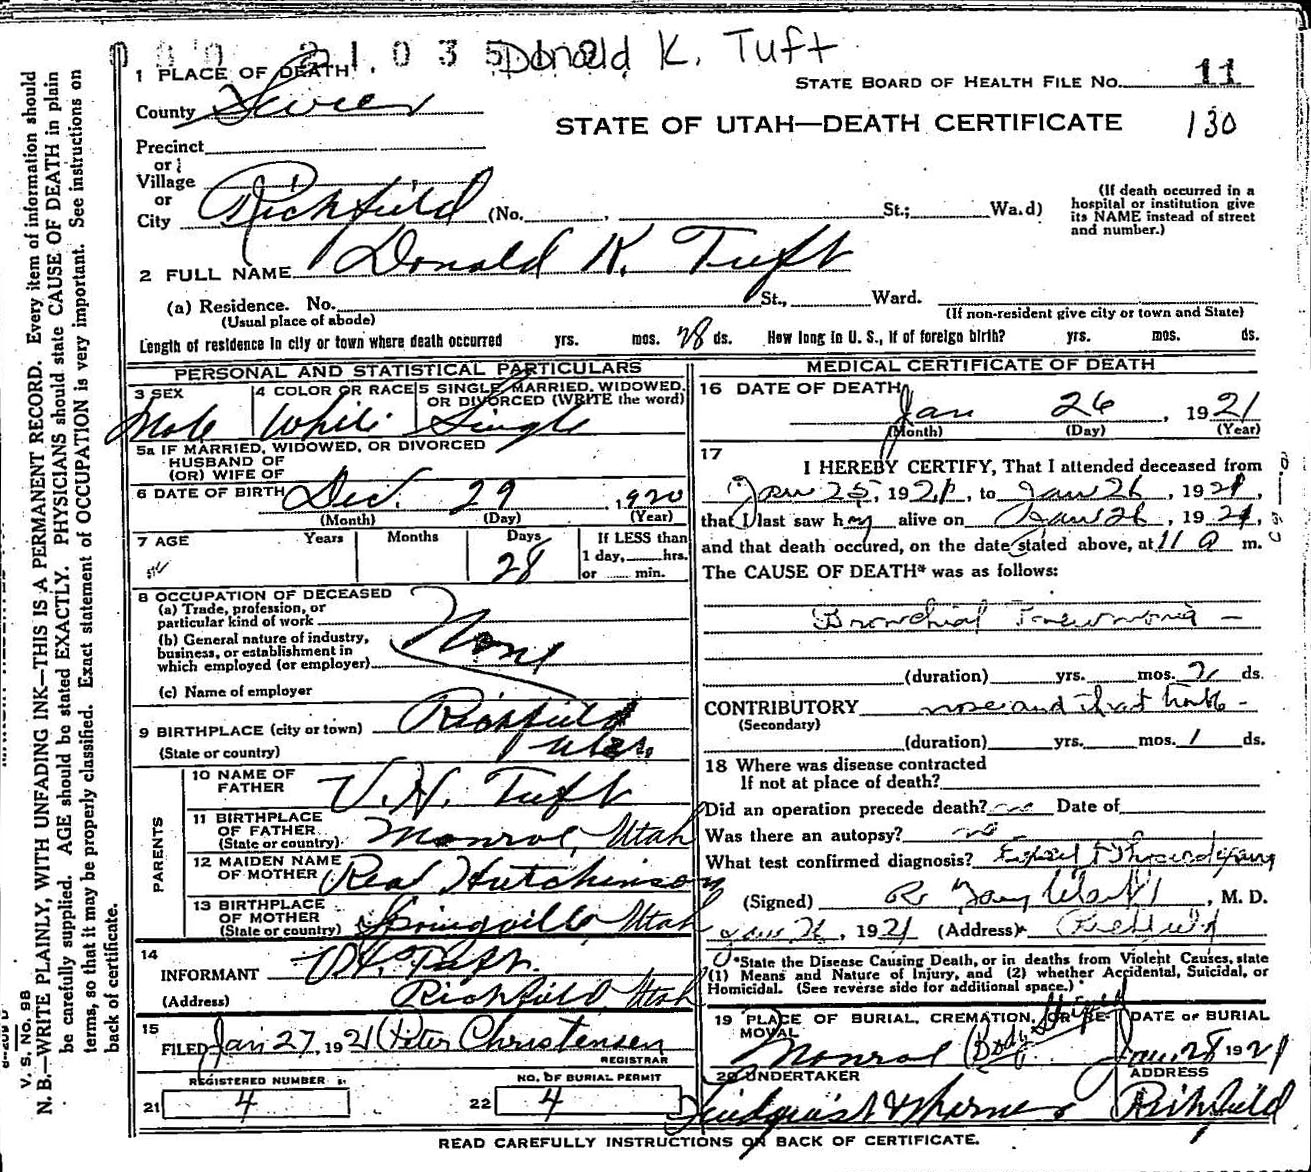 Donald K. Tuft
1 PLACE OF DEATH
STATE BOARD OF HEALTH FILE NO. 11
County Sevier
STATE OF UTAH—DEATH CERTIFICATE 130
Precinct
or
Village
or
City Richfield (No. , St.; Wa.d)
(If death occurred in a
hospital or institution give
its NAME instead of street
and number.)
2 FULL NAME Donald K. Tuft
(a) Residence. No. St., Ward.
(Usual place of abode)
(If non-resident give city or town and State)
Length of residence in city or town where death occurred yrs. mos. 28 ds. How long in U. S., if of foreign birth? yrs. mos. ds.
PERSONAL AND STATISTICAL PARTICULARS
3 SEX
Male
4 COLOR OR RACE
White
5 SINGLE, MARRIED, WIDOWED,
OR DIVORCED (WRITE the word)
Single
5a IF MARRIED, WIDOWED, OR DIVORCED
HUSBAND OF
(OR) WIFE OF
6 DATE OF BIRTH Dec. 29, 1920
(Month) (Day) (Year)
7 AGE Years Months Days If LESS than
28 1 day, hrs.
or min.
8 OCCUPATION OF DECEASED
(a) Trade, profession, or
particular kind of work
None
(b) General nature of industry,
business, or establishment in
which employed (or employer)
(c) Name of employer
9 BIRTHPLACE (city or town) Richfield
(State or country) Utah
PARENTS
10 NAME OF
FATHER V. H. Tuft
11 BIRTHPLACE
OF FATHER
(State or country) Monroe, Utah
12 MAIDEN NAME
OF MOTHER Hutchinson
13 BIRTHPLACE
OF MOTHER
(State or country) Springville Utah
14
INFORMANT Tuft
(Address) Richfield Utah
15
FILED Jan 27, 1921 Peter Christensen
REGISTRAR
REGISTERED NUMBER
21 4
NO. OF BURIAL PERMIT
22 4
MEDICAL CERTIFICATE OF DEATH
16 DATE OF DEATH
Jan 26, 1921
(Month) (Day) (Year)
17
I HEREBY CERTIFY, That I attended deceased from
Jan 25, 1921, to Jan 26, 1921,
that I last saw him alive on Jan 26, 1921,
and that death occured, on the date stated above, at 11 a m.
The CAUSE OF DEATH* was as follows:
Bronchial Pneumonia
(duration) yrs. mos. 2 ds.
CONTRIBUTORY nose and throat trouble
(Secondary)
(duration) yrs. mos. 1 ds.
18 Where was disease contracted
If not at place of death?
Did an operation precede death? no Date of
Was there an autopsy? no
What test confirmed diagnosis?
(Signed) , M. D.
Jan 26, 1921 (Address) Richfield
*State the Disease Causing Death, or in deaths from Violent Causes, state
(1) Means and Nature of Injury, and (2) whether Accidental, Suicidal, or
Homicidal. (See reverse side for additional space.)
19 PLACE OF BURIAL, CREMATION, OR RE-
MOVAL
Monroe (Body Shipped
DATE OF BURIAL
Jan. 28 1921
20 UNDERTAKER
ADDRESS
Richfield
READ CAREFULLY INSTRUCTIONS ON BACK OF CERTIFICATE.
V. S. No. 98
N. B.—WRITE PLAINLY, WITH UNFADING INK—THIS IS A PERMANENT RECORD. Every item of information should
be carefully supplied. AGE should be stated EXACTLY. PHYSICIANS should state CAUSE OF DEATH in plain
terms, so that it may be properly classified. Exact statement of OCCUPATION is very important. See instructions on
back of certificate.